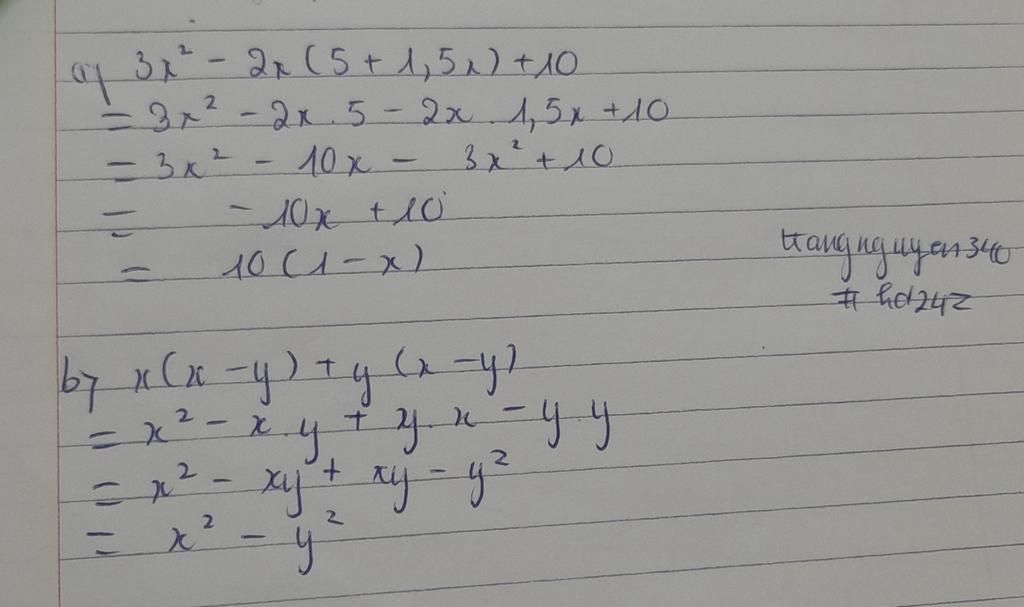 a) 3x² - 2x(5 + 1,5x) + 10
= 3x² - 2x.5 - 2x.1,5x + 10
= 3x² - 10x - 3x² + 10
= -10x + 10
= 10(1 - x)
trangnguyen340
# hd247
b) x(x - y) + y(x - y)
= x² - x.y + y.x - y.y
= x² - xy + xy - y²
= x² - y²